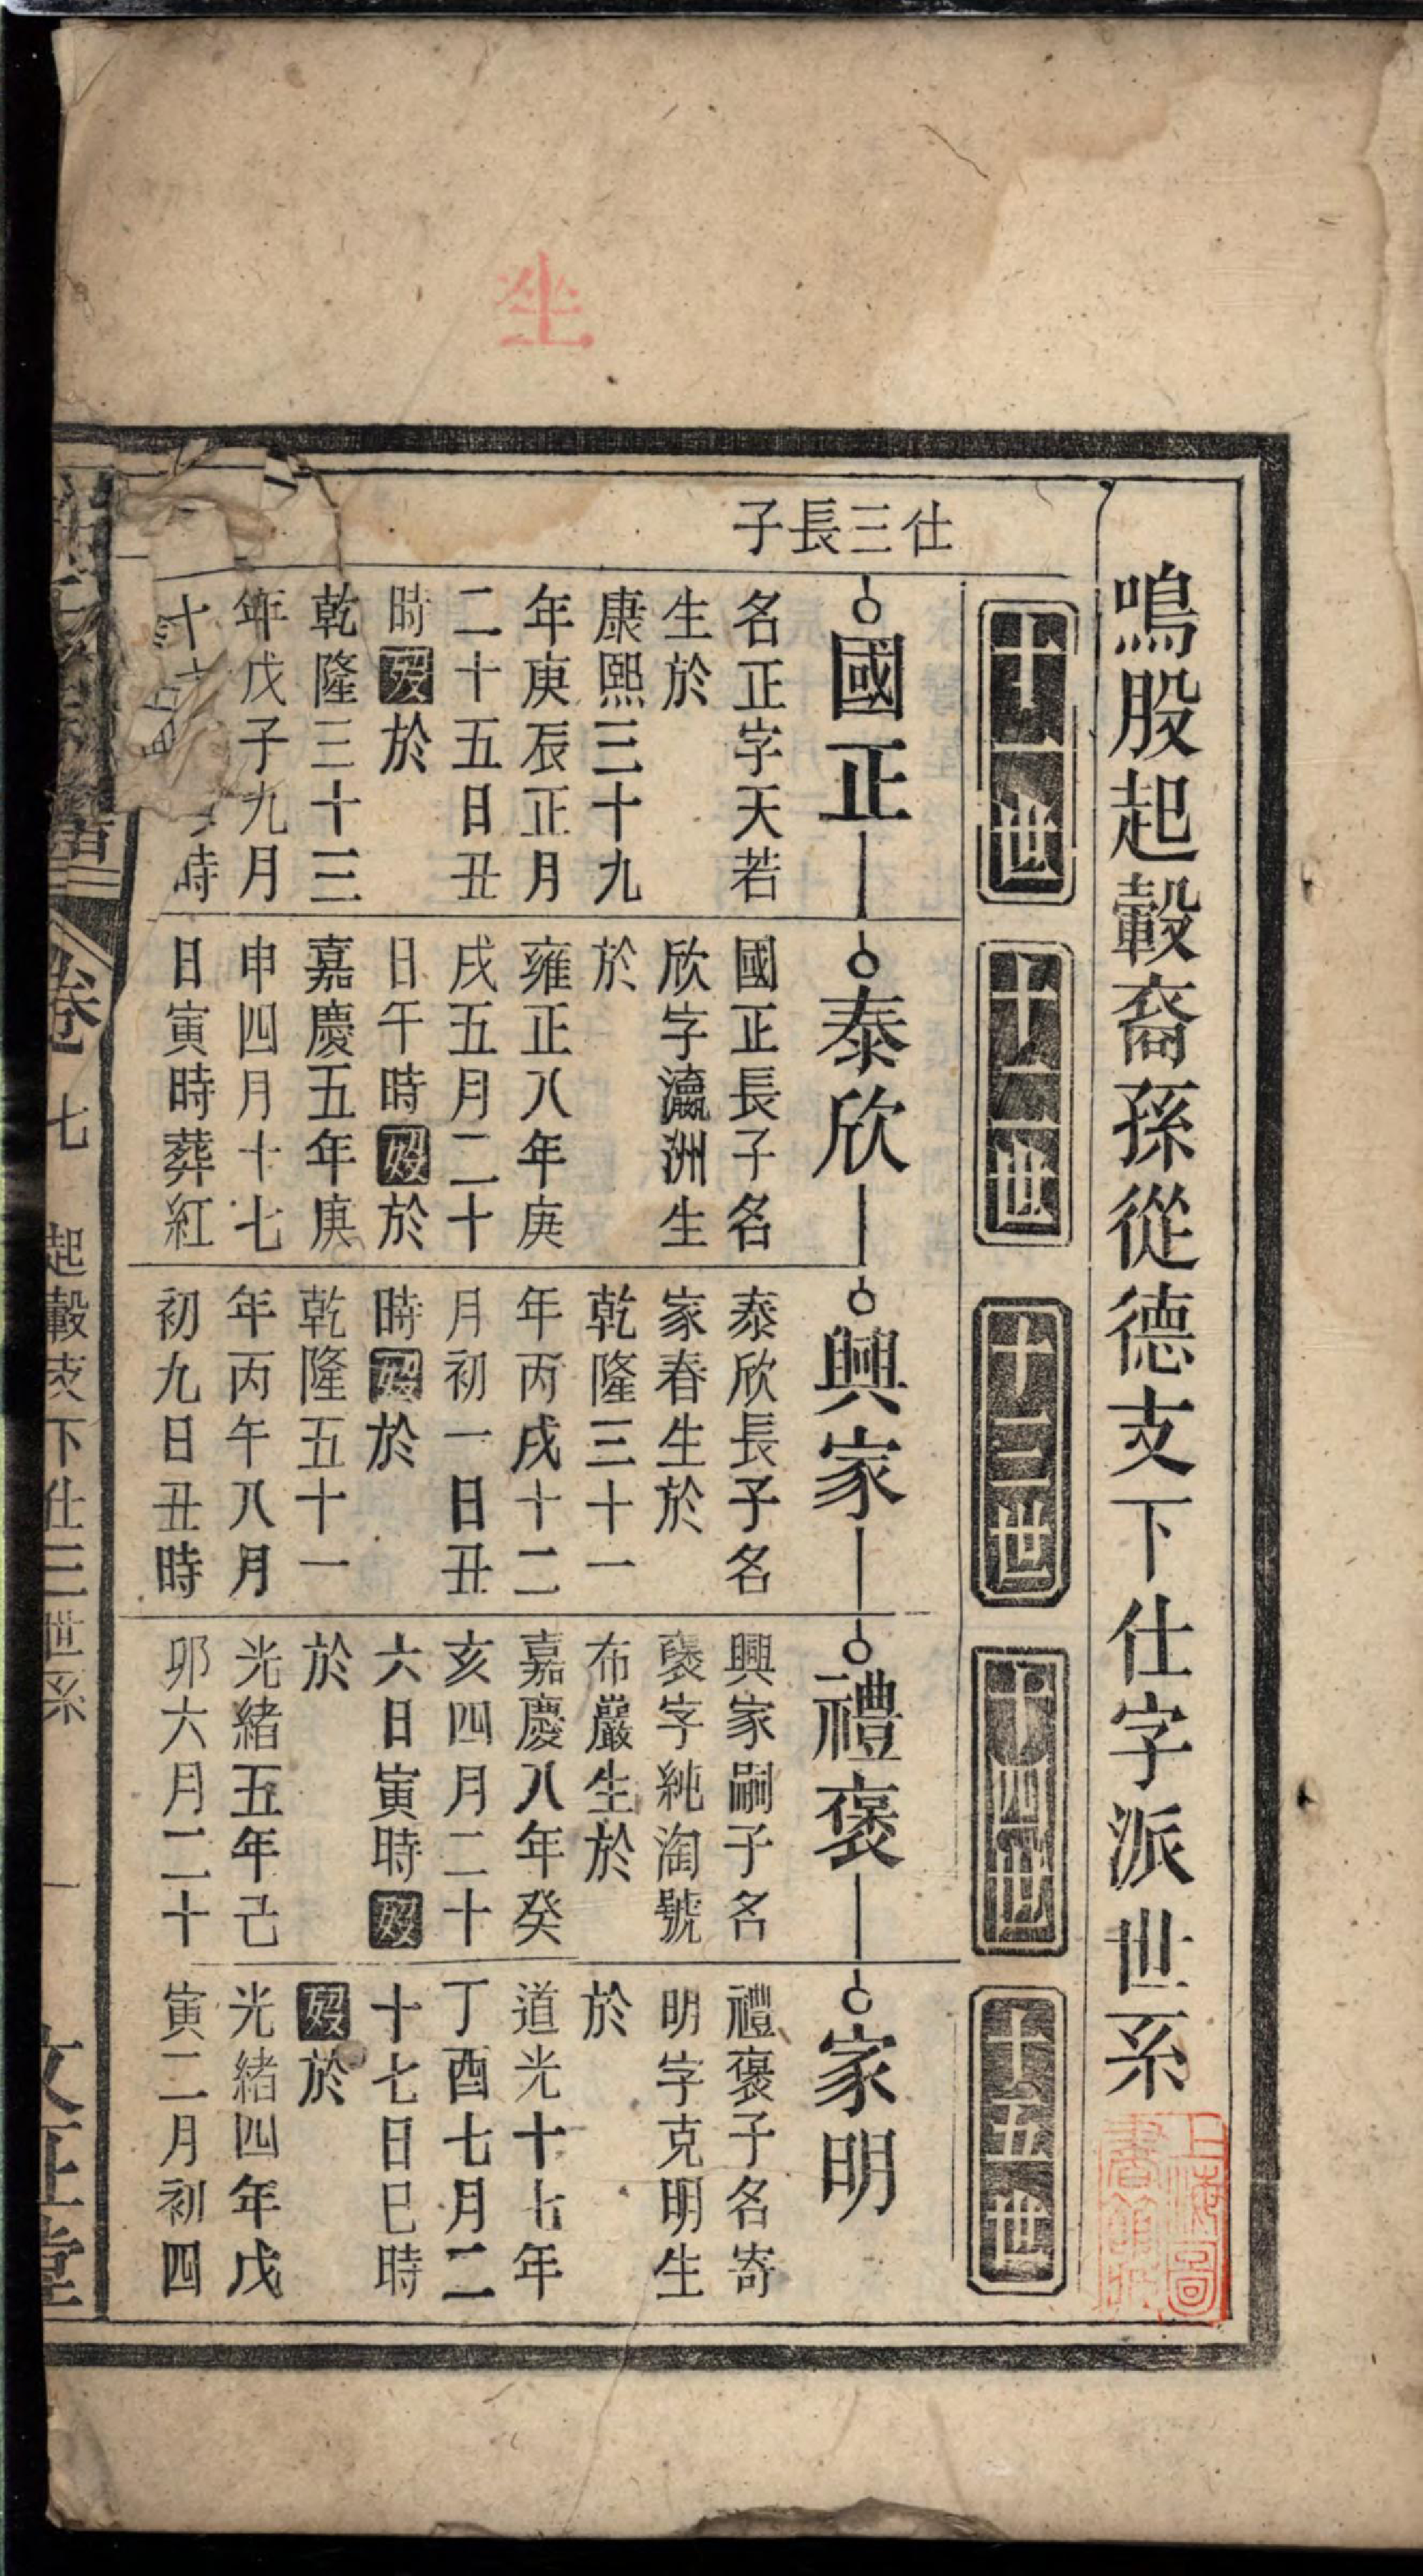 坐
鳴股起轂裔孫從德支下仕字派世系
十一世
十二世
十三世
十四世
十五世
仕三長子
國正
名正字天若
生於
康熙三十九
年庚辰正月
二十五日丑
時歿於
乾隆三十三
年戊子九月
十
時
泰欣
國正長子名
欣字瀛洲生
於
雍正八年庚
戌五月二十
日午時歿於
嘉慶五年庚
申四月十七
日寅時葬紅
興家
泰欣長子名
家春生於
乾隆三十一
年丙戌十二
月初一日丑
時歿於
乾隆五十一
年丙午八月
初九日丑時
禮褒
興家嗣子名
褒字純淘號
布嚴生於
嘉慶八年癸
亥四月二十
六日寅時歿
於
光緒五年己
卯六月二十
家明
禮褒子名寄
明字克明生
於
道光十七年
丁酉七月二
十七日巳時
歿於
光緒四年戊
寅二月初四
卷七
起轂支下仕三世系
一
文正堂
上海圖
書館藏